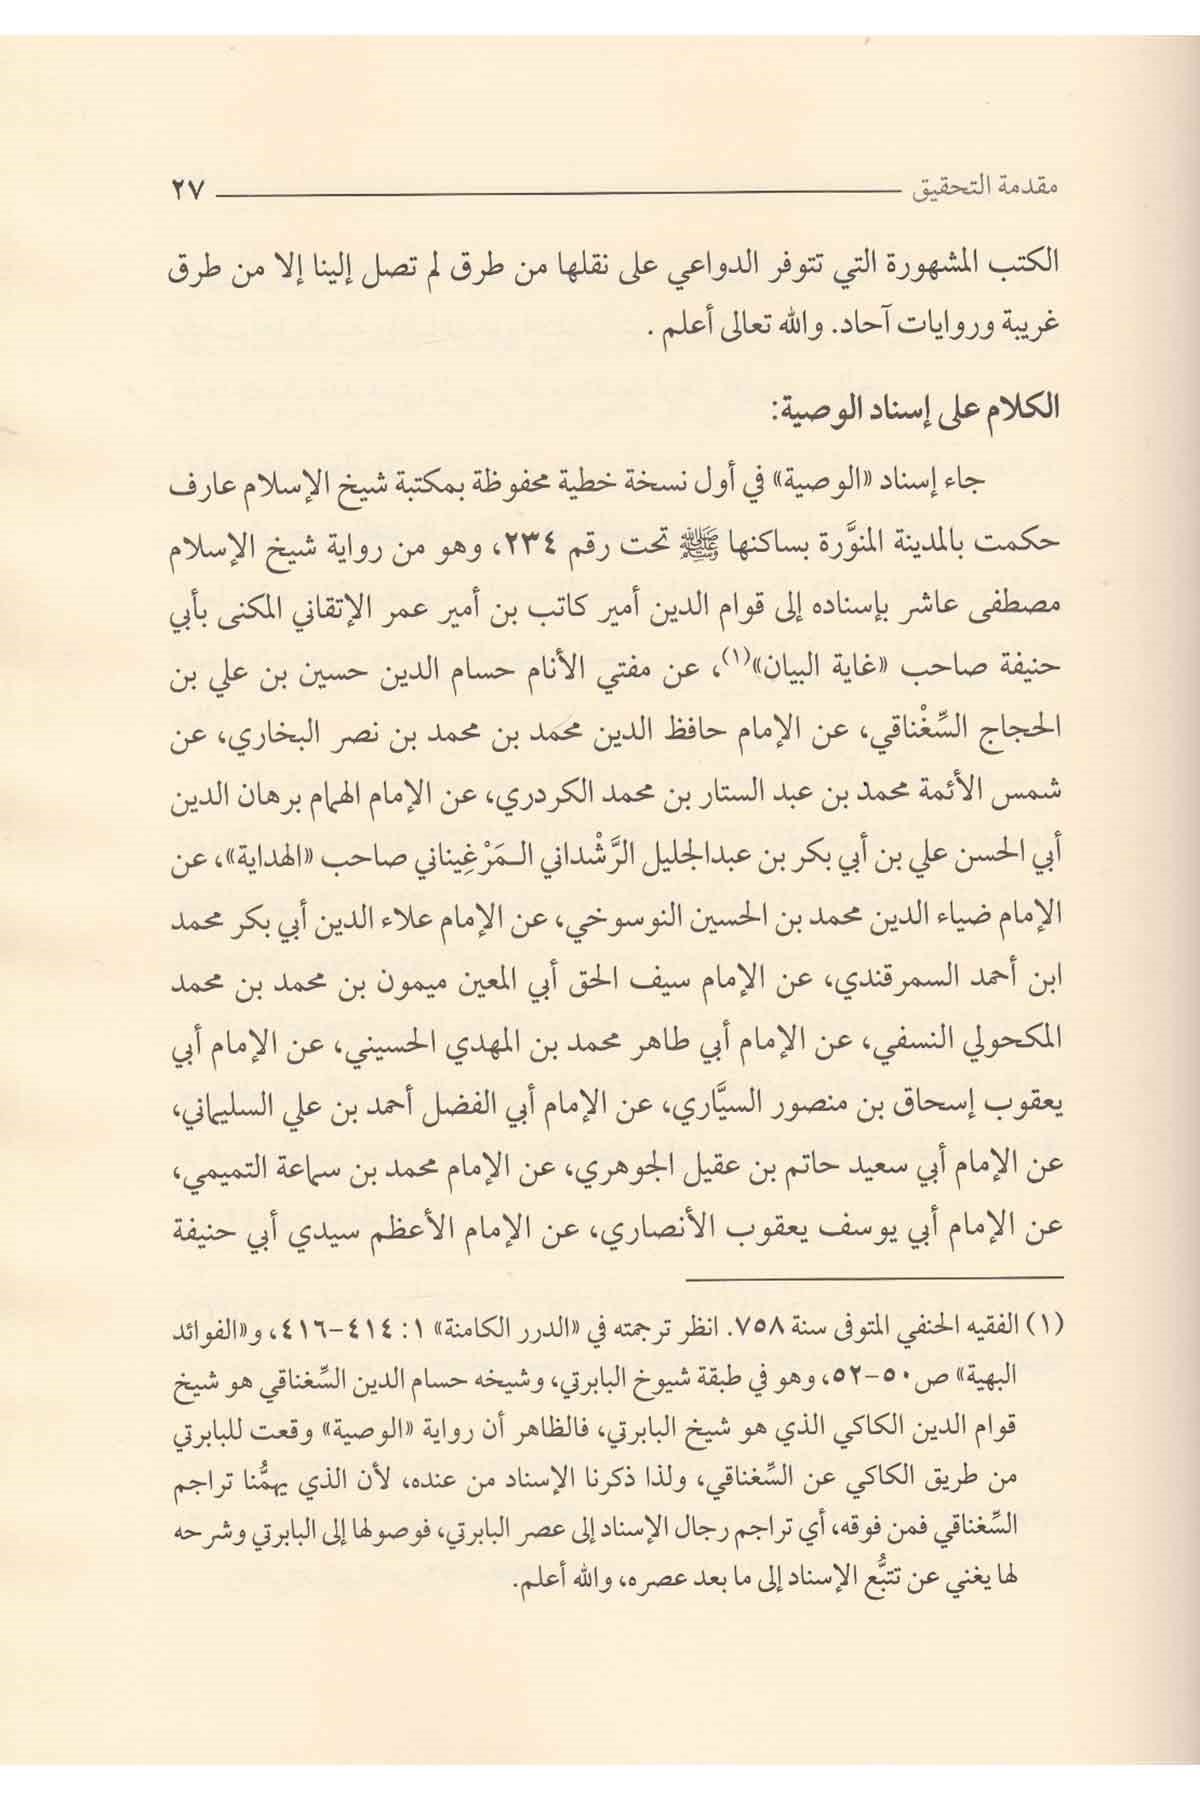 مقدمة التحقيق ٢٧
الكتب المشهورة التي تتوفر الدواعي على نقلها من طرق لم تصل إلينا إلا من طرق
غريبة وروايات آحاد. والله تعالى أعلم .
الكلام على إسناد الوصية:
جاء إسناد «الوصية» في أول نسخة خطية محفوظة بمكتبة شيخ الإسلام عارف
حكمت بالمدينة المنوَّرة بساكنها ﷺ تحت رقم ٢٣٤، وهو من رواية شيخ الإسلام
مصطفى عاشر بإسناده إلى قوام الدين أمير كاتب بن أمير عمر الإتقاني المكنى بأبي
حنيفة صاحب «غاية البيان»(١)، عن مفتي الأنام حسام الدين حسين بن علي بن
الحجاج السِّغْناقي، عن الإمام حافظ الدين محمد بن محمد بن نصر البخاري، عن
شمس الأئمة محمد بن عبد الستار بن محمد الكردري، عن الإمام الهمام برهان الدين
أبي الحسن علي بن أبي بكر بن عبدالجليل الرَّشْداني المَرْغِيناني صاحب «الهداية»، عن
الإمام ضياء الدين محمد بن الحسين النوسوخي، عن الإمام علاء الدين أبي بكر محمد
ابن أحمد السمرقندي، عن الإمام سيف الحق أبي المعين ميمون بن محمد بن محمد
المكحولي النسفي، عن الإمام أبي طاهر محمد بن المهدي الحسيني، عن الإمام أبي
يعقوب إسحاق بن منصور السيَّاري، عن الإمام أبي الفضل أحمد بن علي السليماني،
عن الإمام أبي سعيد حاتم بن عقيل الجوهري، عن الإمام محمد بن سماعة التميمي،
عن الإمام أبي يوسف يعقوب الأنصاري، عن الإمام الأعظم سيدي أبي حنيفة
(١) الفقيه الحنفي المتوفى سنة ٧٥٨. انظر ترجمته في «الدرر الكامنة» ١: ٤١٤-٤١٦، و«الفوائد
البهية» ص٥٠-٥٢، وهو في طبقة شيوخ البابرتي، وشيخه حسام الدين السِّغناقي هو شيخ
قوام الدين الكاكي الذي هو شيخ البابرتي، فالظاهر أن رواية «الوصية» وقعت للبابرتي
من طريق الكاكي عن السِّغناقي، ولذا ذكرنا الإسناد من عنده، لأن الذي يهمُّنا تراجم
السِّغناقي فمن فوقه، أي تراجم رجال الإسناد إلى عصر البابرتي، فوصولها إلى البابرتي وشرحه
لها يغني عن تتبُّع الإسناد إلى ما بعد عصره، والله أعلم.